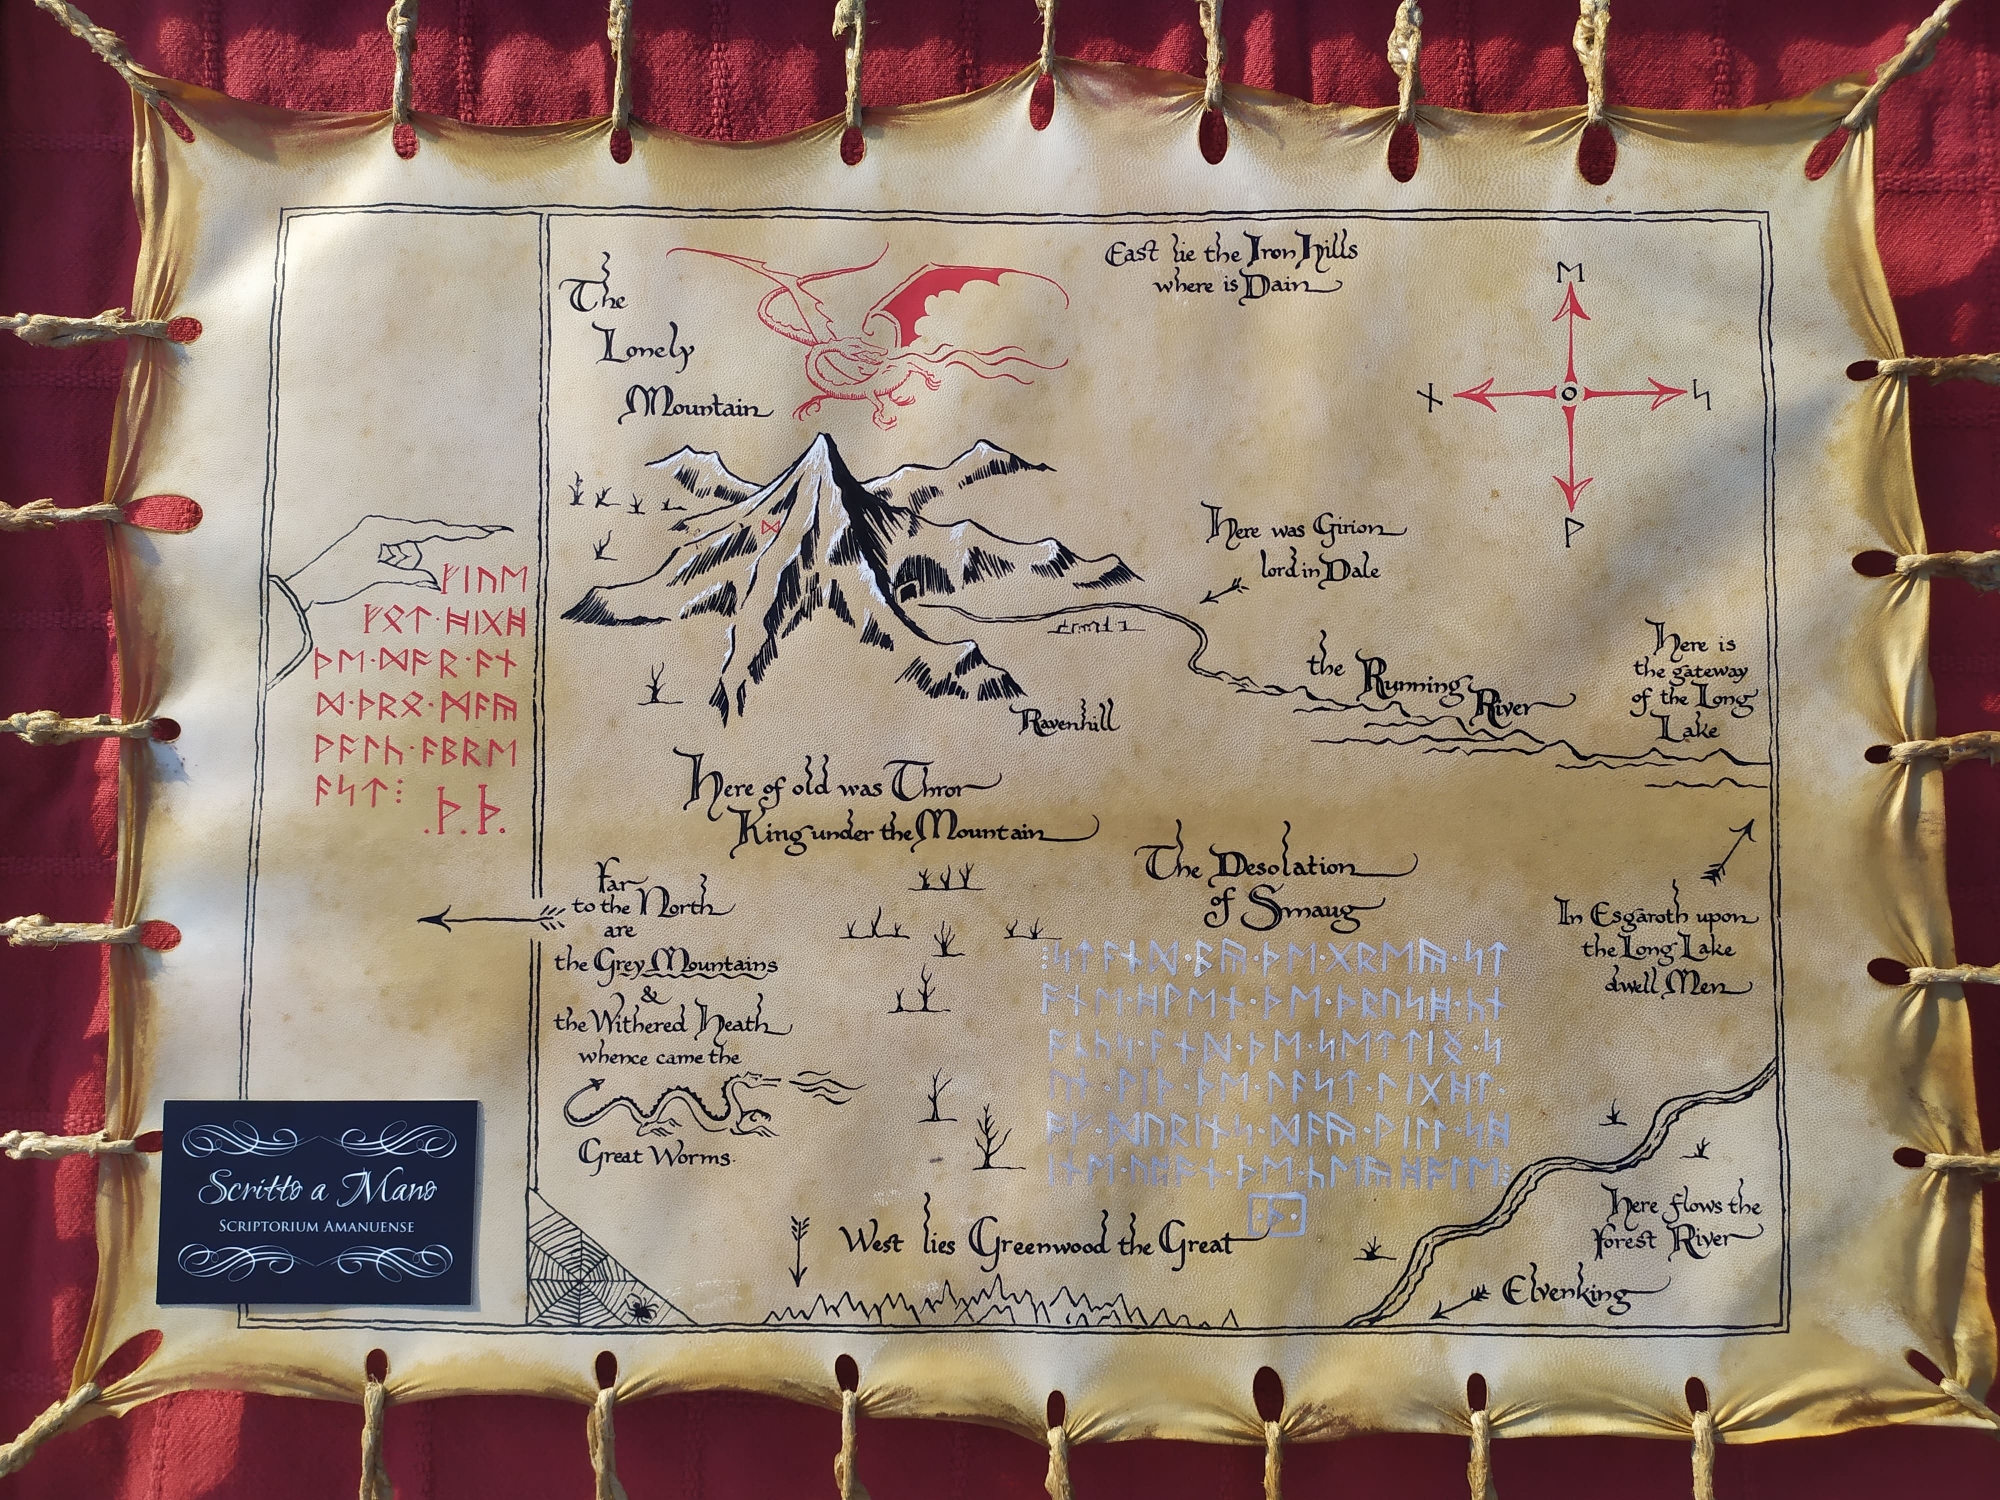 The
Lonely
Mountain
East lie the Iron Hills
where is Dain
ᛖ
ᚾ
ᛋ
ᚹ
ᛞ
Here was Girion
lord in Dale
ᚠᛁᚢᛖ
ᚠᛟᛏ·ᚻᛁᚷᚻ
ᚦᛖ·ᛞᚩᚱ·ᚫᚾ
ᛞ·ᚦᚱᛟ·ᛗᚫᚣ
ᚹᚫᛚᚳ·ᚫᛒᚱᛖ
ᚫᛋᛏ⁝
.ᚦ.ᚦ.
the Running River
Here is
the gateway
of the Long
Lake
Ravenhill
Here of old was Thror
King under the Mountain
The Desolation
of Smaug
Far
to the North
are
the Grey Mountains
&
the Withered Heath
whence came the
Great Worms.
In Esgaroth upon
the Long Lake
dwell Men
West lies Greenwood the Great
Here flows the
Forest River
Elvenking
Scritto a Mano
SCRIPTORIUM AMANUENSE